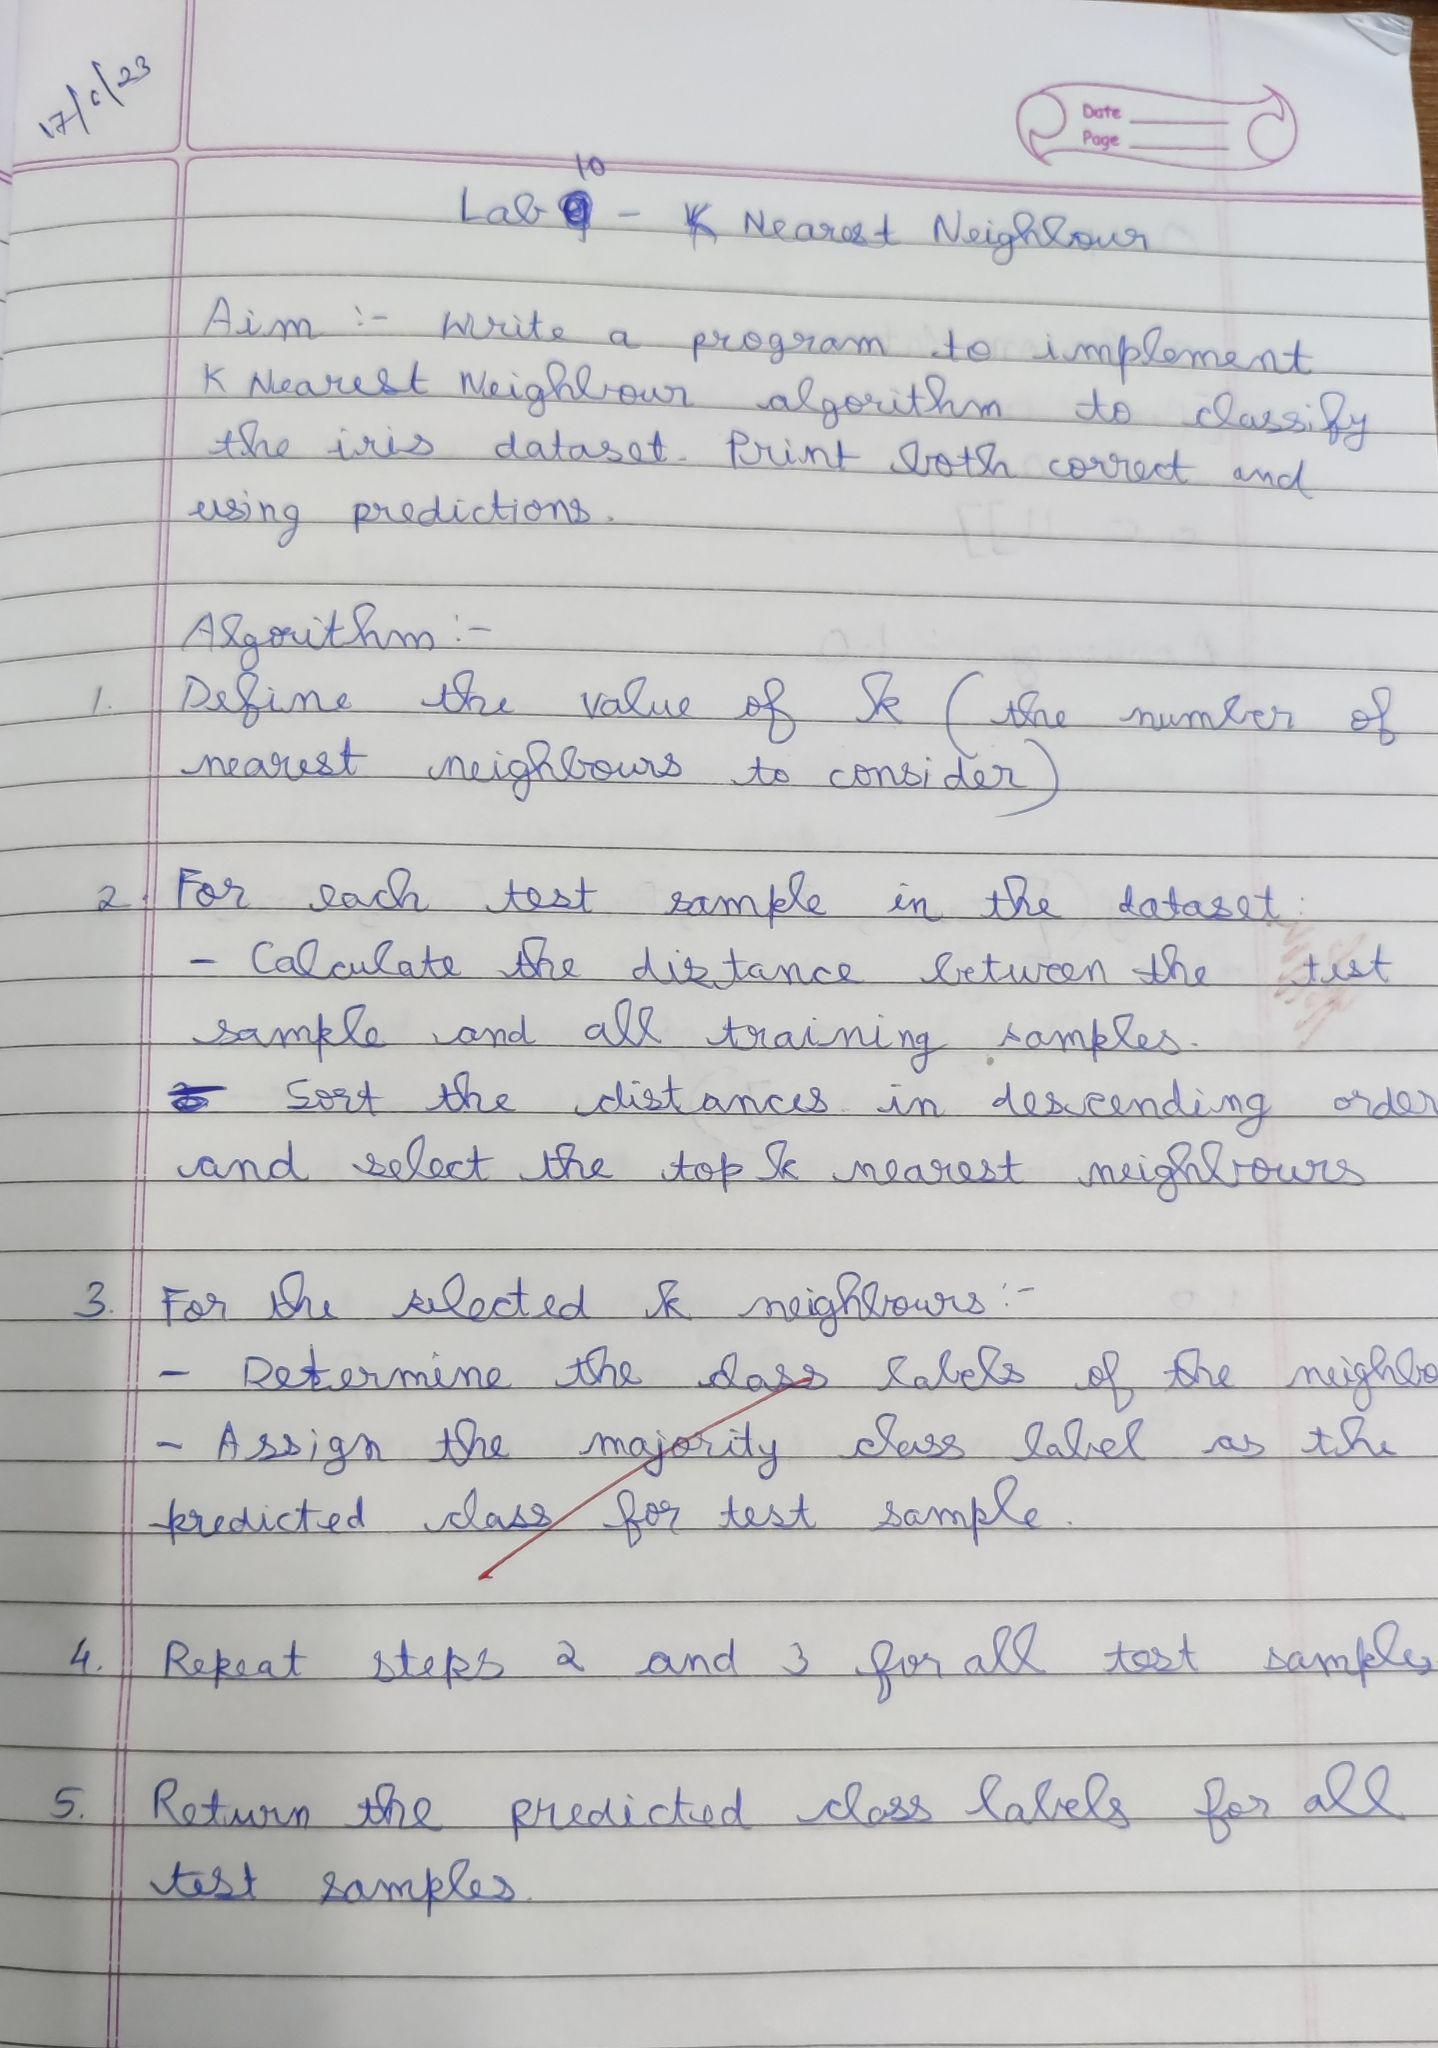 17/6/23
Date
Page
10
Lab - K Nearest Neighbour
Aim :- Write a program to implement
K Nearest Neighbour algorithm to classify
the iris dataset. Print both correct and
using predictions.
Algorithm :-
1. Define the value of k (the number of
nearest neighbours to consider)
2. For each test sample in the dataset:
- Calculate the distance between the test
sample and all training samples.
- Sort the distances in descending order
and select the top k nearest neighbours
3. For the selected k neighbours :-
- Determine the class labels of the neighbo
- Assign the majority class label as the
predicted class for test sample.
4. Repeat steps 2 and 3 for all test samples
5. Return the predicted class labels for all
test samples.